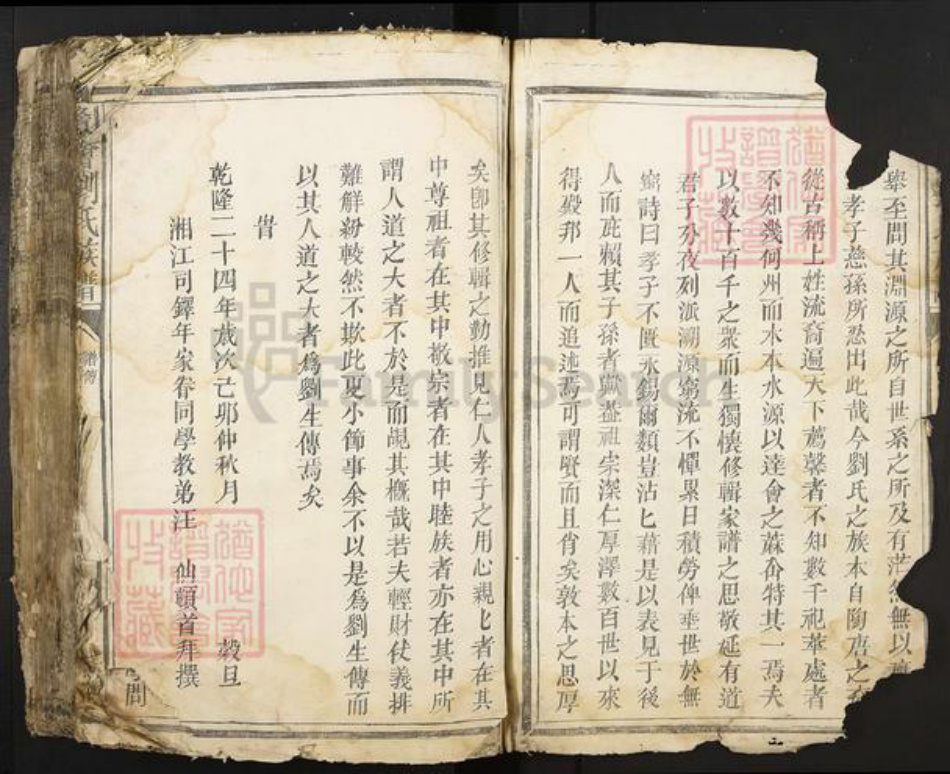 舉至問其淵源之所自世系之所及有茫然無以
孝子慈孫所忍出此哉今劉氏之族本自陶唐之
從古稱上姓流裔遍天下薦馨者不知數千祀萃處者
不知幾何州而木本水源以達會之蔴谷特其一焉夫
以數十百千之衆而生獨懷修輯家譜之思敬延有道
君子分夜列派溯源窮流不憚累日積勞俾垂世於無
窮詩曰孝子不匱永錫爾類豈沾匕藉是以表見于後
人而庇賴其子孫者歟盖祖宗深仁厚澤數百世以來
得發邦一人而追述焉可謂賢而且肖矣敦本之思厚
矣卽其修輯之勤推見仁人孝子之用心親匕者在其
中尊祖者在其中敬宗者在其中睦族者亦在其中所
謂人道之大者不於是而覘其概哉若夫輕財仗義排
難解紛較然不欺此更小節事余不以是爲劉生傳而
以其人道之大者爲劉生傳焉矣
旹
乾隆二十四年歲次己卯仲秋月 穀旦
湘江司鐸年家眷同學教弟汪 仙頓首拜撰
劉氏族譜
FamilySearch